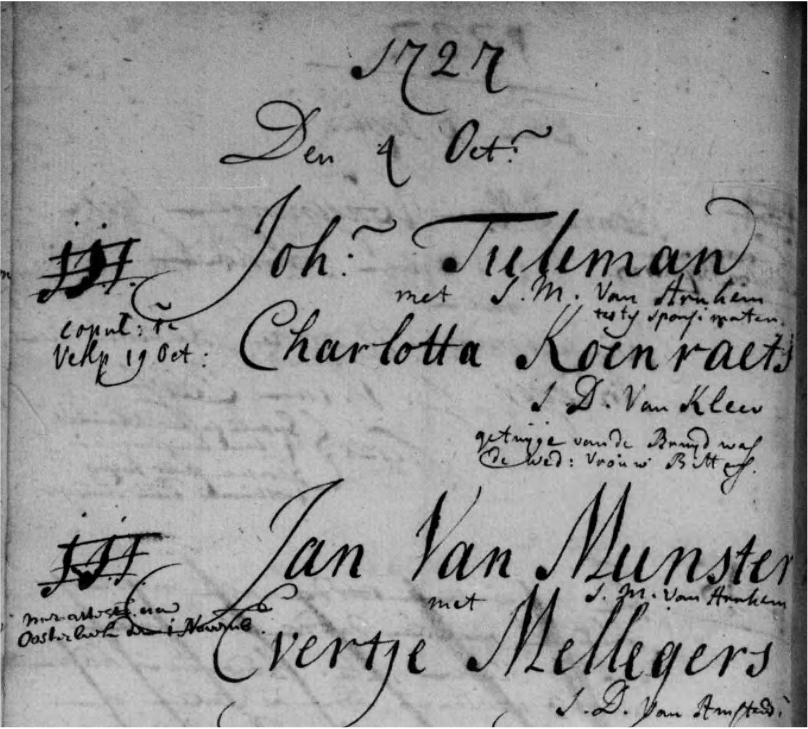 1727
Den 4 Oct:r
Joh:s Tuleman
met J. M. Van Arnhem
testis sponsi mater.
III.
copul: te
Velp 19 Oct:
Charlotta Koenraets
J D. Van Kleev
getuijge van de Bruijd was
de wed: vrouw Bitters.
III.
Jan Van Munster
met J. M. Van Arnhem
Oosterbeek den 1 Novemb.
Evertje Mellegers
J. D. Van Amsterd: